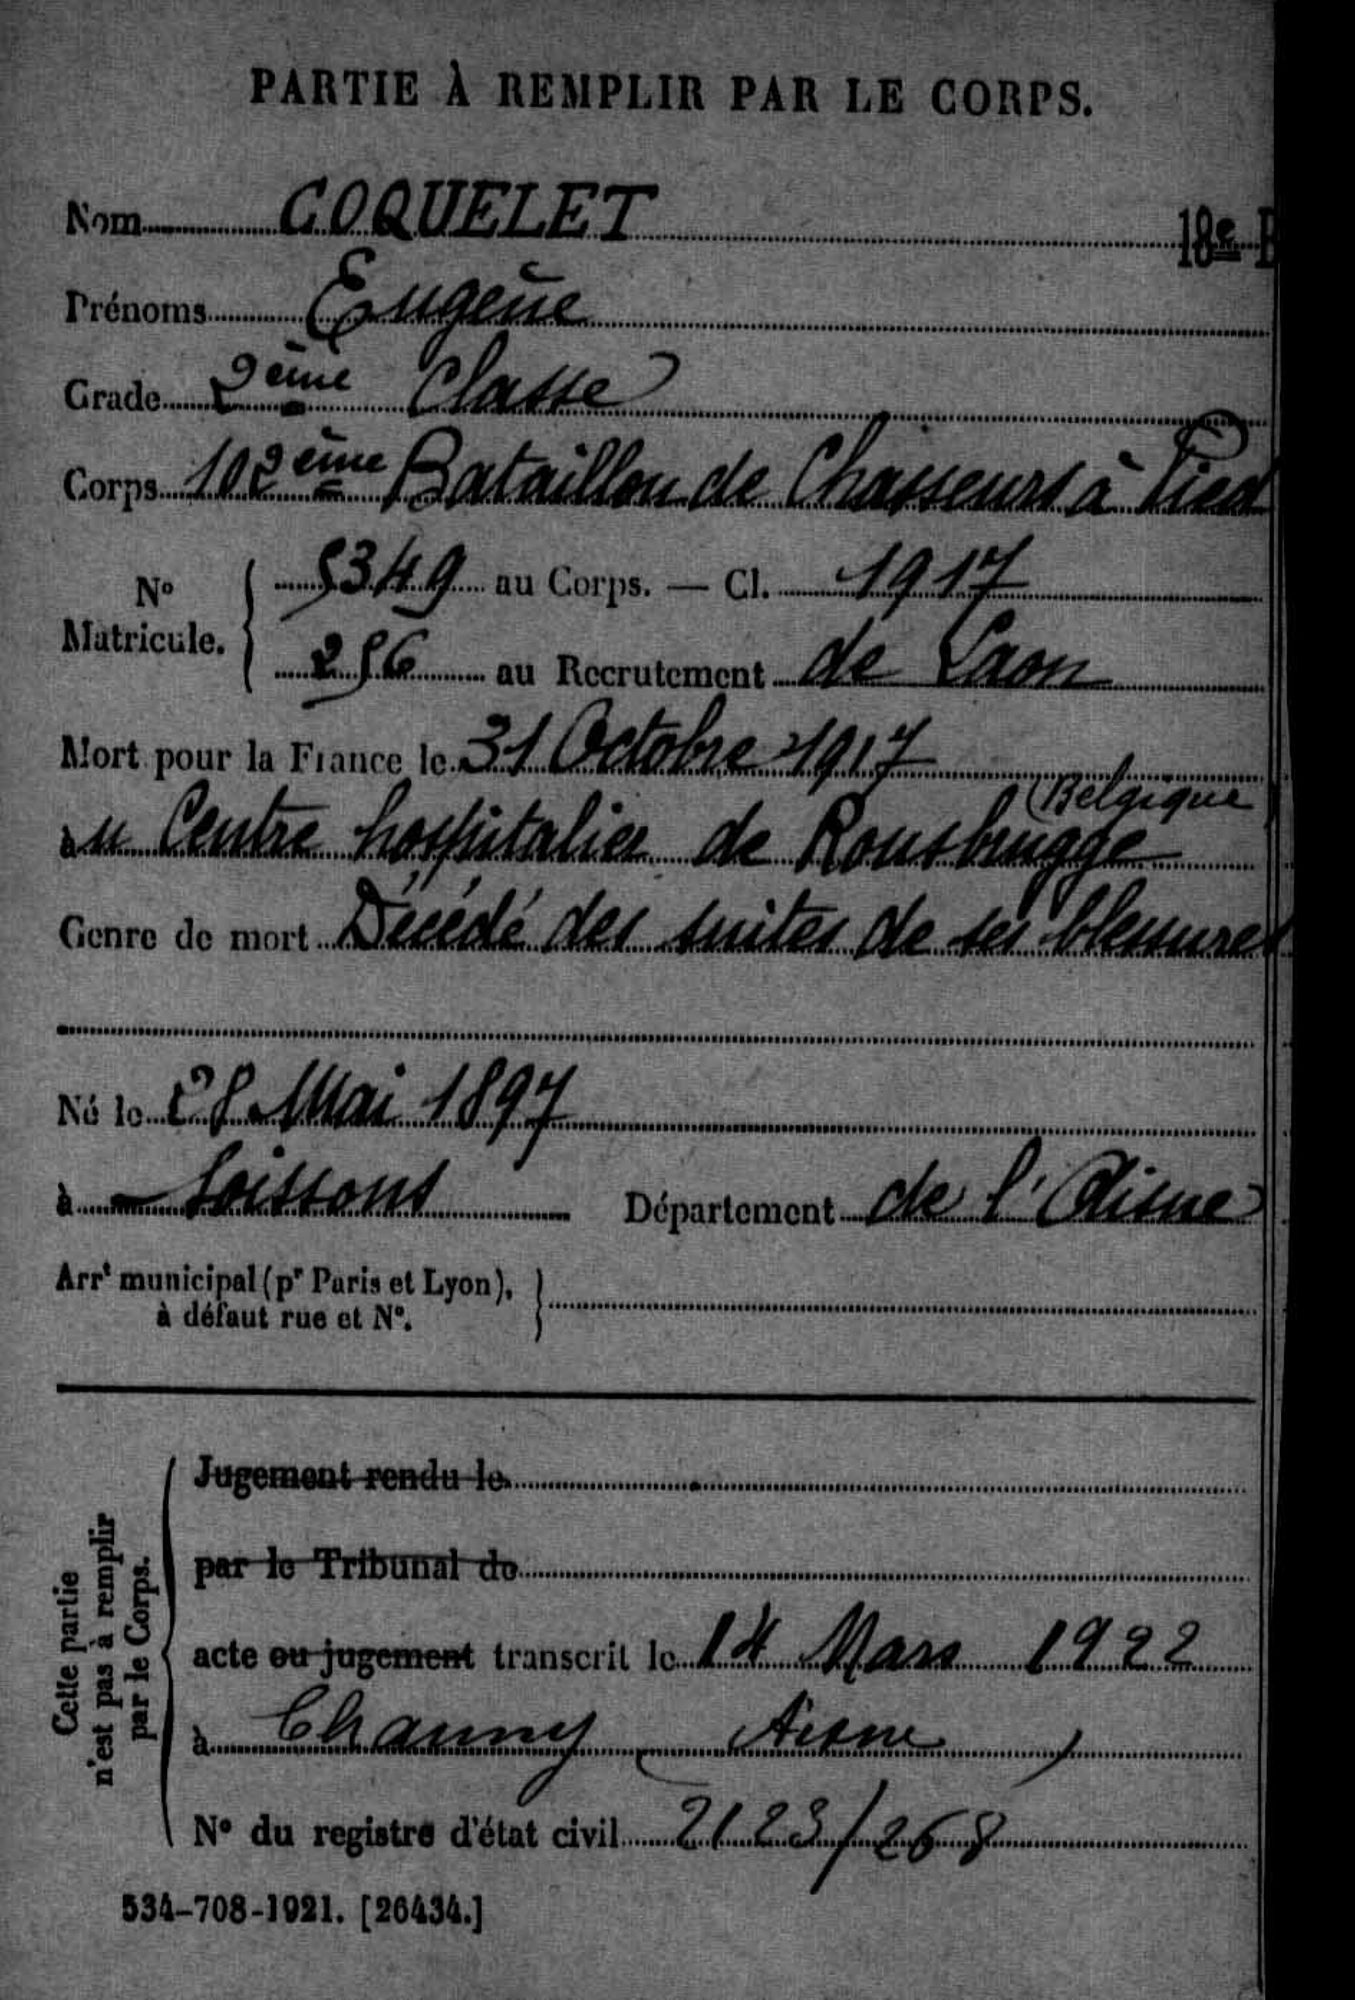 PARTIE À REMPLIR PAR LE CORPS.
Nom COQUELET
18e B
Prénoms Eugène
Grade 2ème Classe
Corps 102ème Bataillon de Chasseurs à Pied
No Matricule. { 5349 au Corps. — Cl. 1917
256 au Recrutement de Laon
Mort pour la France le 31 Octobre 1917
(Belgique
au Centre hospitalier de Rousbrugge
Genre de mort Décédé des suites de ses blessures
Né le 28 Mai 1897
à Soissons Département de l'Aisne
Arrt municipal (pr Paris et Lyon),
à défaut rue et No.
Cette partie
n'est pas à remplir
par le Corps.
Jugement rendu le
par le Tribunal de
acte ou jugement transcrit le 14 Mars 1922
à Chauny (Aisne)
No du registre d'état civil 2123/268
534-708-1921. [26434.]